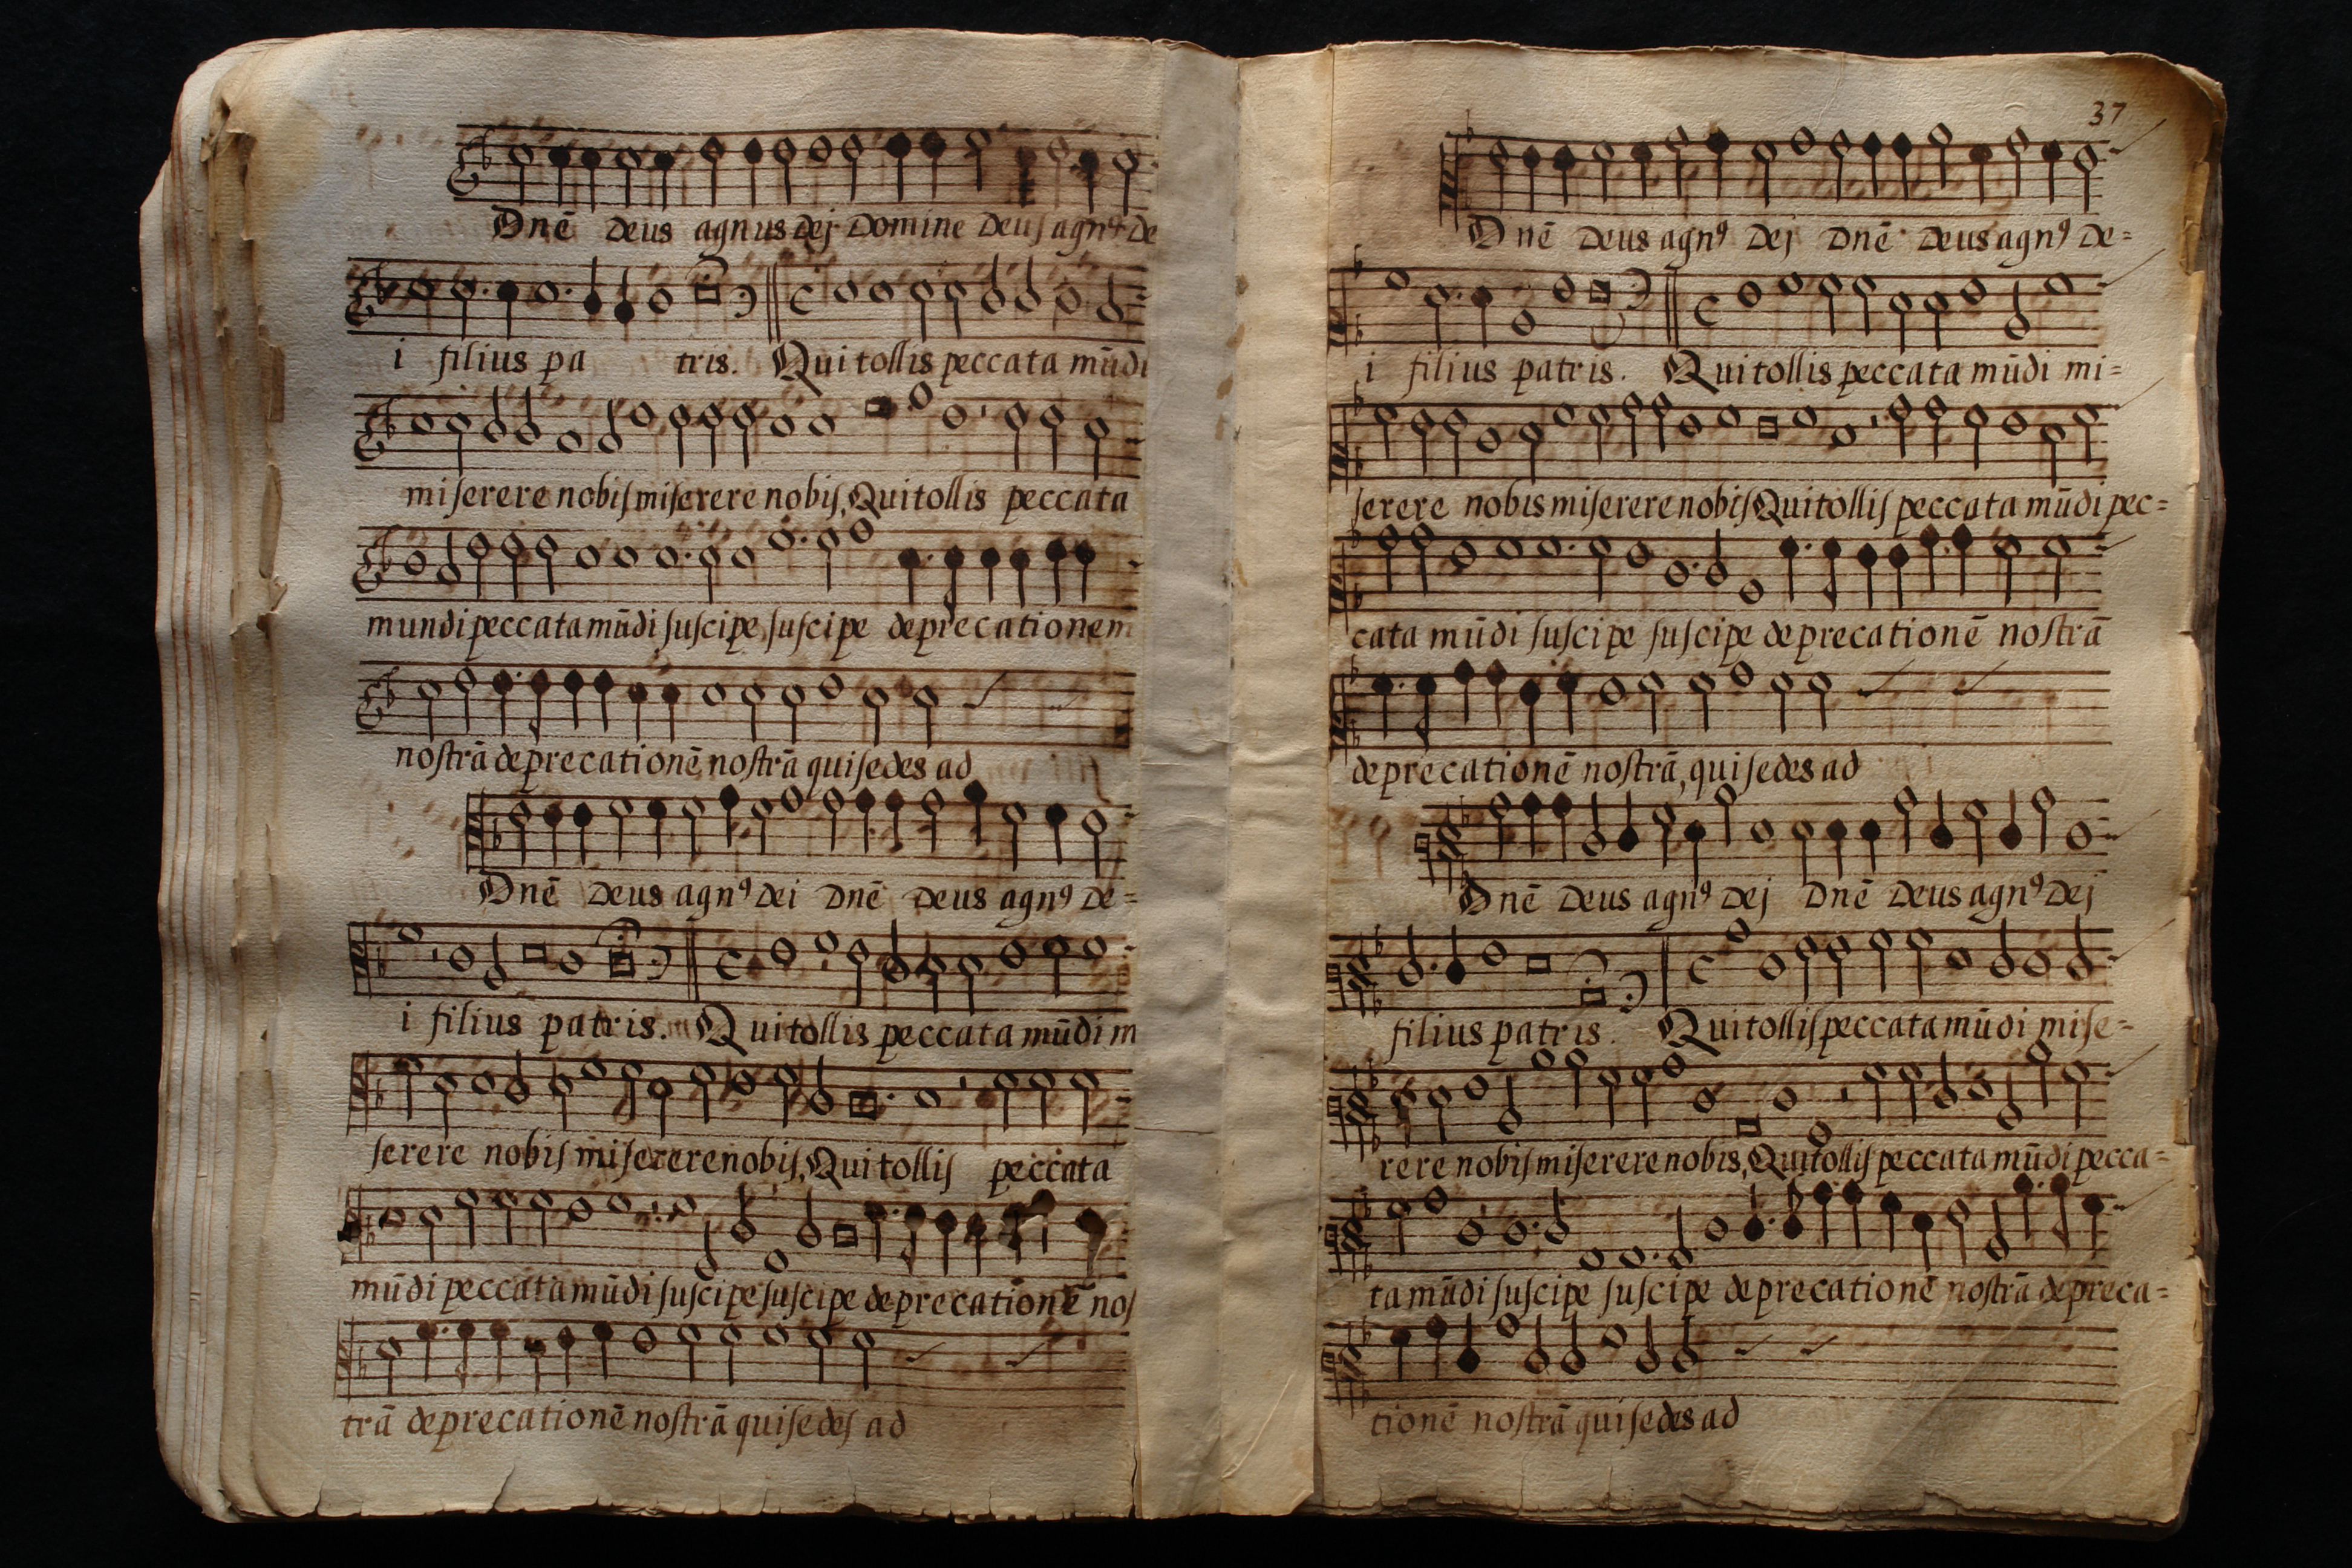 Dnē Deus agnus dej Domine Deus agnꝰ de
i filius pa tris. Qui tollis peccata mūdi
miserere nobis miserere nobis, Qui tollis peccata
mundi peccata mūdi suscipe, suscipe deprecationem
nostrā deprecationē nostrā qui sedes ad
Dnē Deus agnꝰ dei Dnē Deus agnꝰ de=
i filius patris. Qui tollis peccata mūdi m
serere nobis miserere nobis, Qui tollis peccata
mūdi peccata mūdi suscipe suscipe deprecationē nos
trā deprecationē nostrā qui sedes ad
37
Dnē Deus agnꝰ Dej Dnē Deus agnꝰ De=
i filius patris. Qui tollis peccata mūdi mi=
serere nobis miserere nobis Qui tollis peccata mūdi pec=
cata mūdi suscipe suscipe deprecationē nostrā
deprecationē nostrā, qui sedes ad
Dnē Deus agnꝰ Dej Dnē Deus agnꝰ Dej
filius patris. Qui tollis peccata mūdi mise=
rere nobis miserere nobis, Qui tollis peccata mūdi pecca=
ta mūdi suscipe suscipe deprecationē nostrā depreca=
tionē nostrā qui sedes ad